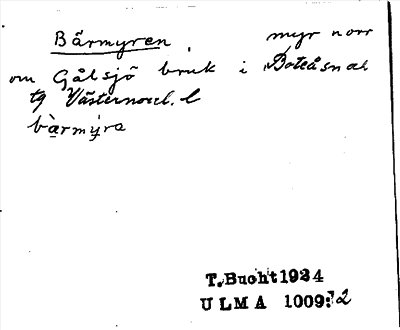 Bärmyren, myr norr
om Gålsjö bruk i Boteå snch
tg Västernorrl. l
bàrmýra
T. Bucht 1924
ULMA 1009:2